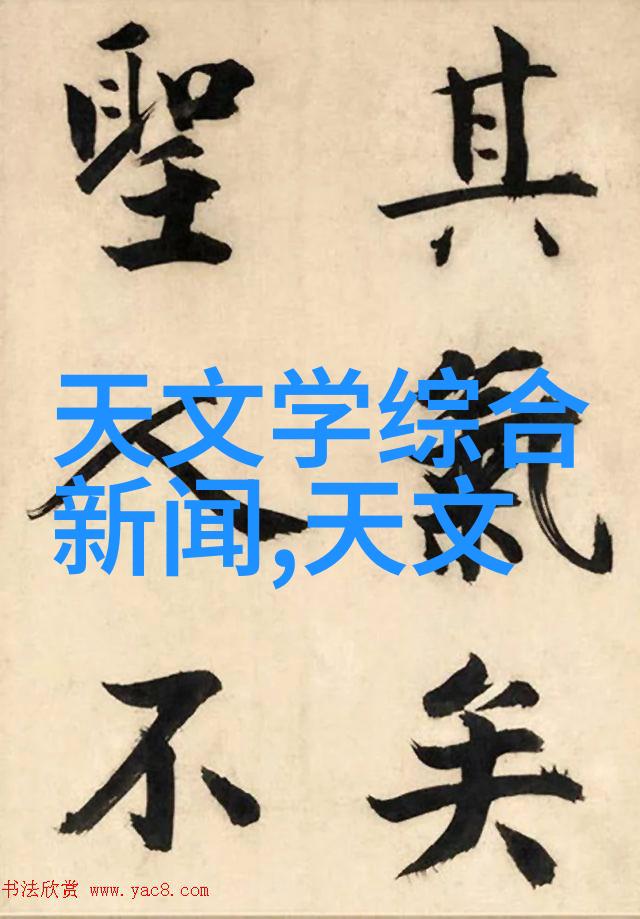 其氣矣
聖人不
天文学综合
新闻,天文
书法欣赏 www.yac8.com